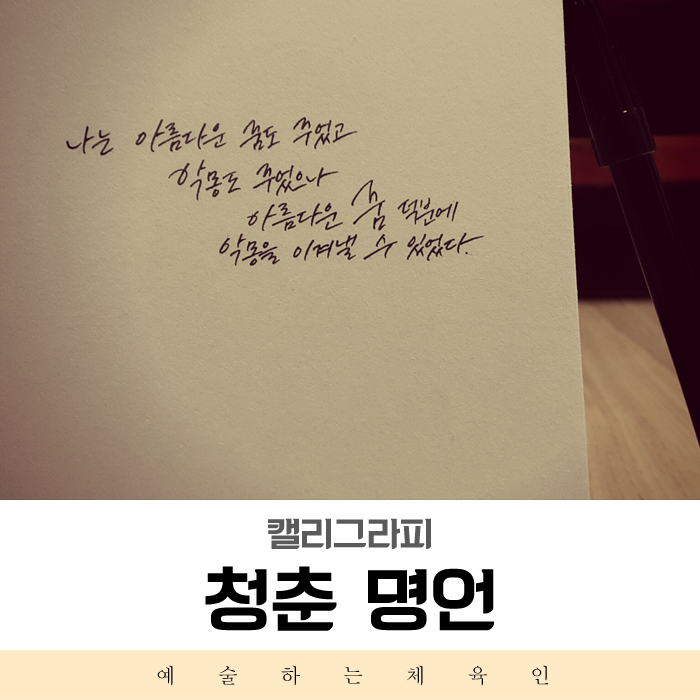 나는 아름다운 꿈도 꾸었고
악몽도 꾸었으나
아름다운 꿈 덕분에
악몽을 이겨낼 수 있었다.
캘리그라피
청춘 명언
예술하는체육인